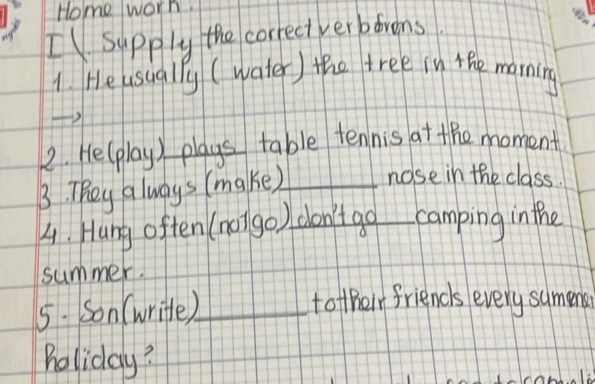 Home work
II. Supply the correct verb forms.
1. He usually (water) the tree in the morning
→
2. He (play) plays table tennis at the moment
3. They always (make) ______ nose in the class.
4. Hung often (not go) don't go camping in the
summer.
5. Son (write) ______ to their friends every sumener
holiday?